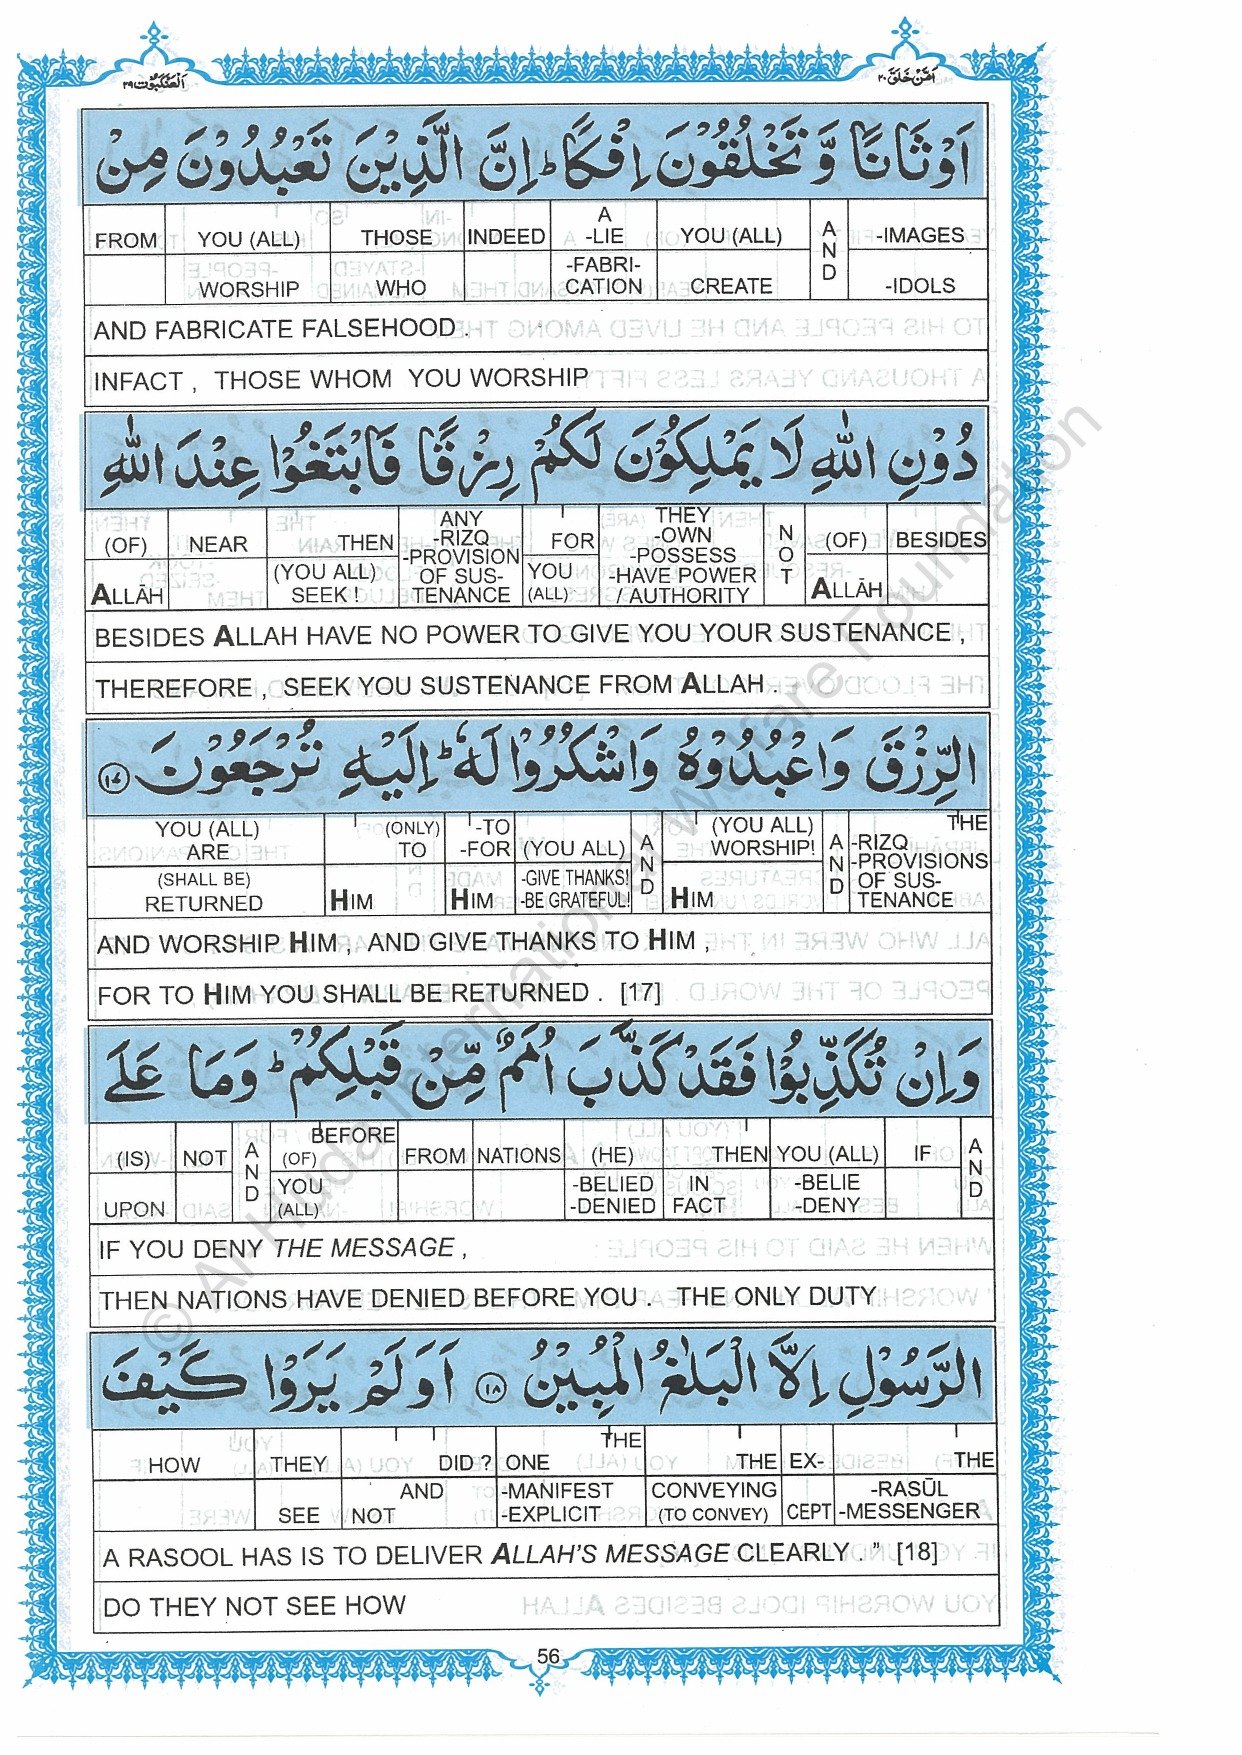 اَمَّنْ خَلَقَ ٢٠
اَلْعَنْكَبُوْت ٢٩
اَوْثَانًا وَّ تَخْلُقُوْنَ اِفْكًا ؕ اِنَّ الَّذِيْنَ تَعْبُدُوْنَ مِنْ
FROM YOU (ALL) THOSE INDEED A -LIE YOU (ALL) AND -IMAGES
WORSHIP WHO -FABRI-CATION CREATE -IDOLS
AND FABRICATE FALSEHOOD .
INFACT , THOSE WHOM YOU WORSHIP
دُوْنِ اللّٰهِ لَا يَمْلِكُوْنَ لَكُمْ رِزْقًا فَابْتَغُوْا عِنْدَ اللّٰهِ
(OF) NEAR THEN ANY -RIZQ -PROVISION OF SUS-TENANCE FOR THEY -OWN -POSSESS -HAVE POWER / AUTHORITY NOT (OF) BESIDES
ALLĀH (YOU ALL) SEEK ! YOU (ALL) ALLĀH
BESIDES ALLAH HAVE NO POWER TO GIVE YOU YOUR SUSTENANCE ,
THEREFORE , SEEK YOU SUSTENANCE FROM ALLAH .
الرِّزْقَ وَاعْبُدُوْهُ وَاشْكُرُوْا لَهٗ ؕ اِلَيْهِ تُرْجَعُوْنَ ١٧
YOU (ALL) ARE (ONLY) TO -TO -FOR (YOU ALL) AND (YOU ALL) WORSHIP! AND THE -RIZQ -PROVISIONS OF SUS-TENANCE
(SHALL BE) RETURNED HIM HIM -GIVE THANKS! -BE GRATEFUL! HIM
AND WORSHIP HIM , AND GIVE THANKS TO HIM ,
FOR TO HIM YOU SHALL BE RETURNED . [17]
وَاِنْ تُكَذِّبُوْا فَقَدْ كَذَّبَ اُمَمٌ مِّنْ قَبْلِكُمْ ؕ وَمَا عَلَى
(IS) NOT AND BEFORE (OF) FROM NATIONS (HE) THEN YOU (ALL) IF AND
UPON YOU (ALL) -BELIED -DENIED IN FACT -BELIE -DENY
IF YOU DENY THE MESSAGE ,
THEN NATIONS HAVE DENIED BEFORE YOU . THE ONLY DUTY
الرَّسُوْلِ اِلَّا الْبَلٰغُ الْمُبِيْنُ ١٨ اَوَلَمْ يَرَوْا كَيْفَ
HOW THEY DID ? THE ONE THE EX- THE
SEE AND NOT -MANIFEST -EXPLICIT CONVEYING (TO CONVEY) CEPT -RASŪL -MESSENGER
A RASOOL HAS IS TO DELIVER ALLAH'S MESSAGE CLEARLY . ” [18]
DO THEY NOT SEE HOW
56
© Al-Huda International Welfare Foundation